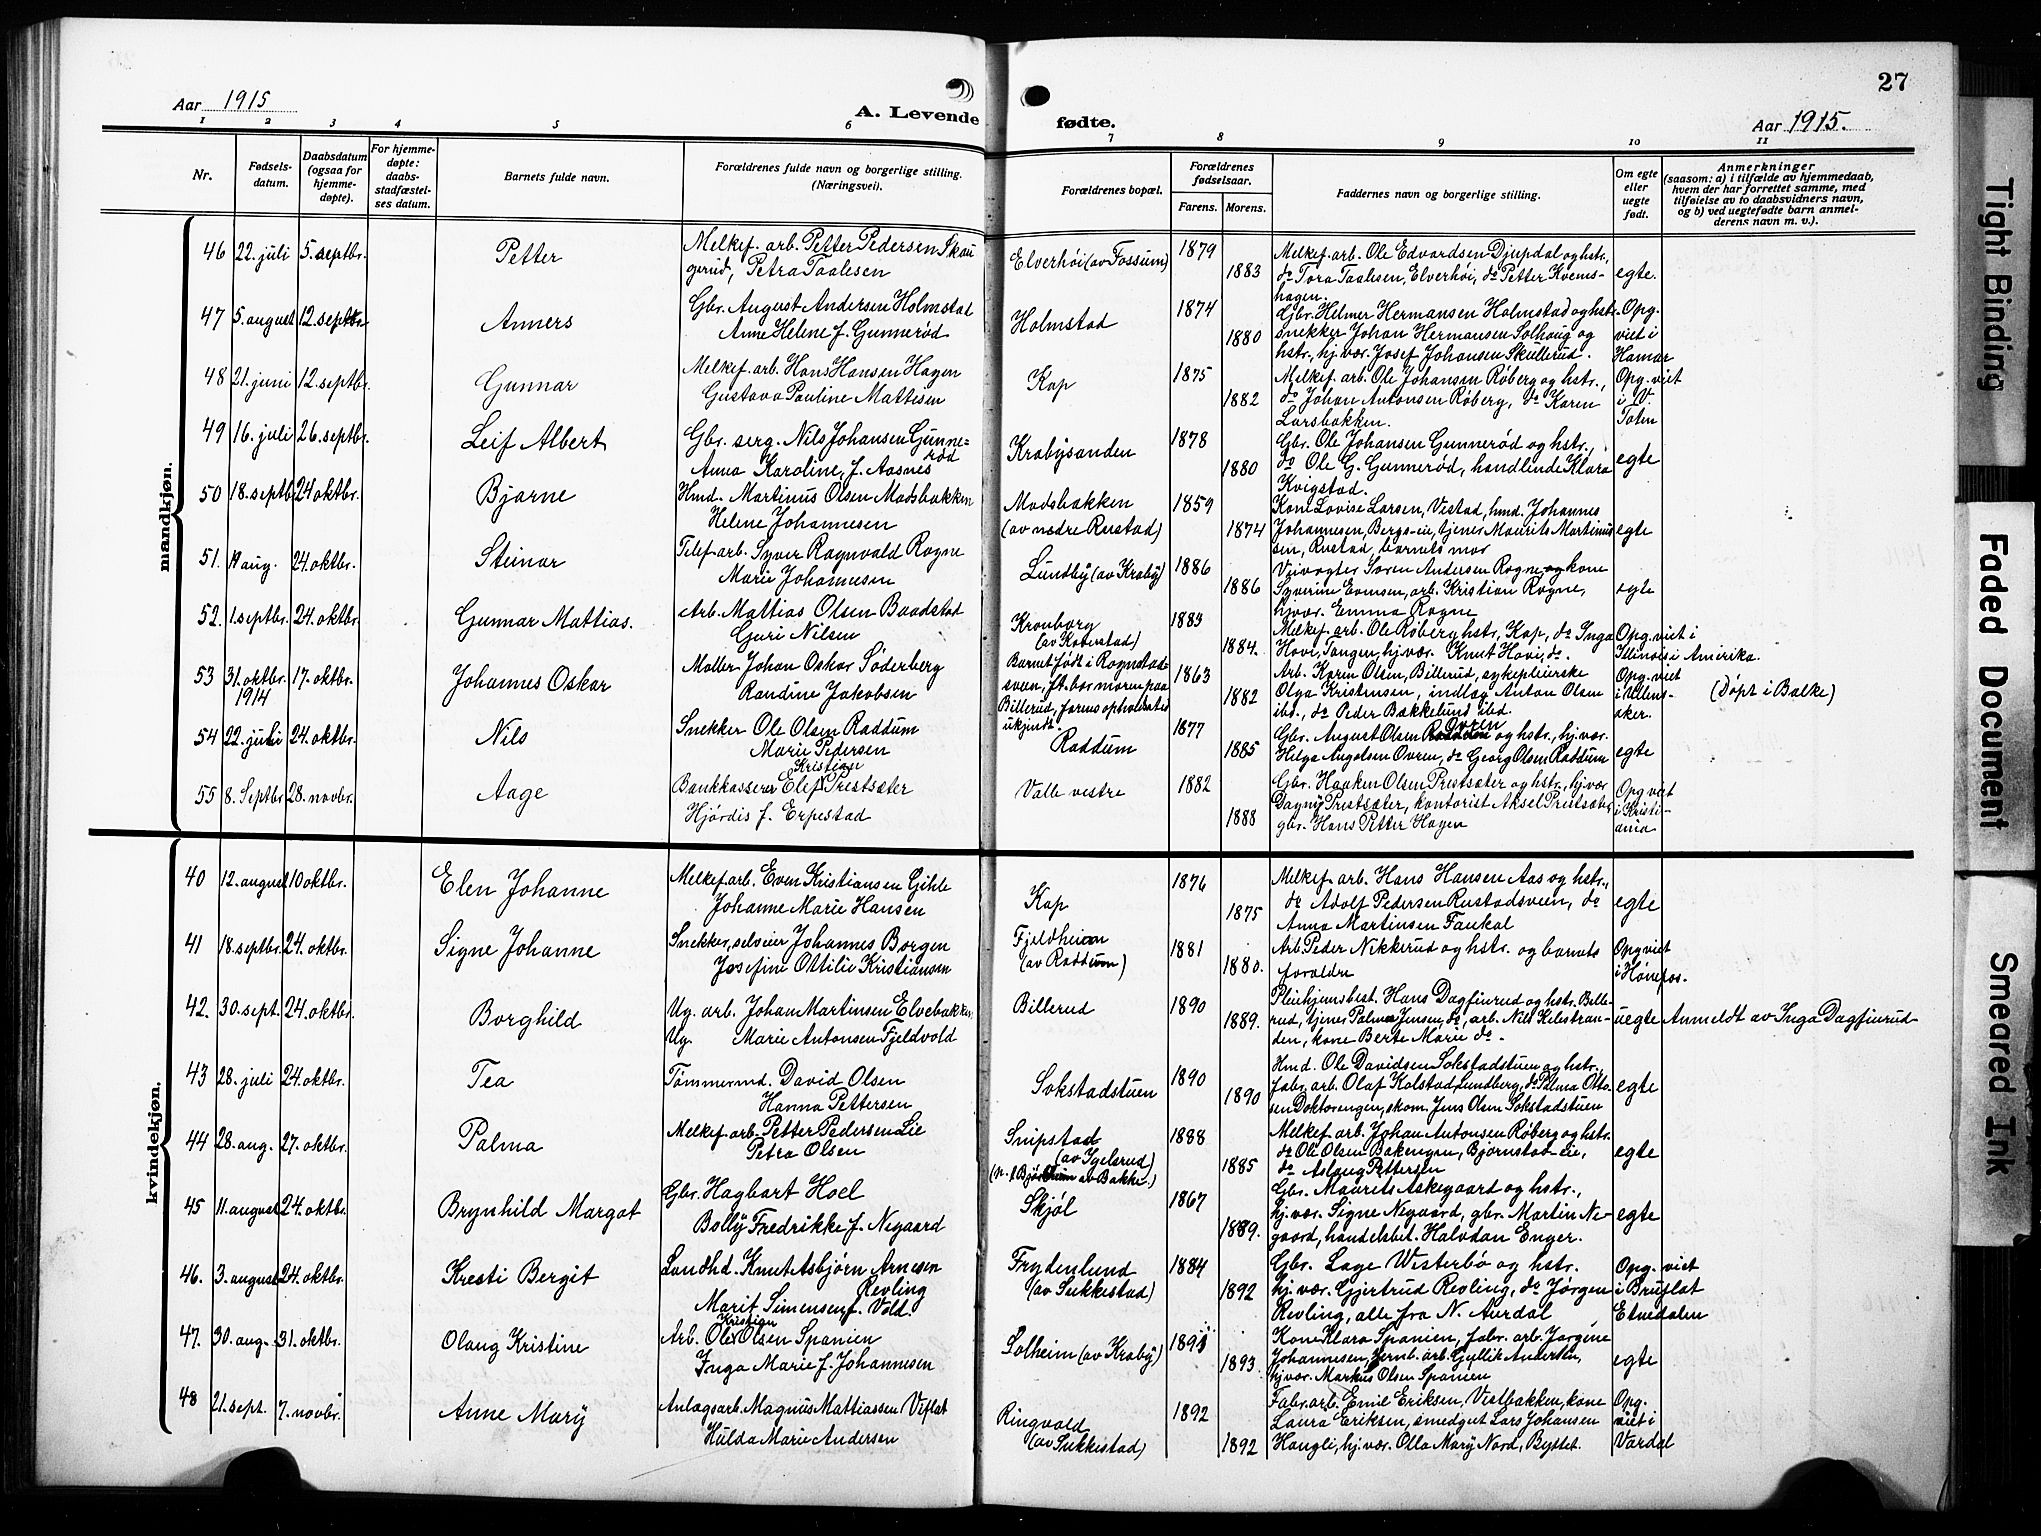 27
Aar 1915
A. Levende
fødte.
Aar 1915.
1 2 3 4 5 6 7 8 9 10 11
Nr.
Fødsels-
datum.
Daabsdatum
(ogsaa for
hjemme-
døpte).
For hjemme-
døpte:
daabs-
stadfæstel-
ses datum.
Barnets fulde navn.
Forældrenes fulde navn og borgerlige stilling.
(Næringsvei).
Forældrenes bopæl.
Forældrenes
fødselsaar.
Farens. Morens.
Faddernes navn og borgerlige stilling.
Om egte
eller
uegte
født.
Anmerkninger
(saasom: a) i tilfælde av hjemmedaab,
hvem der har forrettet samme, med
tilføielse av to daabsvidners navn,
og b) ved uegtefødte barn anmel-
derens navn m. v.).
mandkjøn.
46 22. juli 5. septbr. Petter
Melkef. arb. Petter Pedersen Skau
gerud, Petra Taalesen
Elverhöi (av Fossum)
1879
1883
Melkef. arb. Ole Edvardsen Djupdal og hstr.,
do Tora Taalesen, Elverhöi, do Petter Kvems-
hagen.
egte.
47 5. august 12. septbr Anners
Gbr. August Andersen Holmstad
Anne Helene f. Gunneröd
Holmstad
1874
1880
Gbr. Helmer Hermansen Holmstad og hstr.
snekker Johan Hermansen Solhaug og
hstr., hj. vær. Josef Johansen Skullerud.
Opg.
viet i
Hamar
48 21. juni 12. septbr. Gunnar
Melkef. arb. Hans Hansen Hagen
Gustava Pauline Mattesen
Kap
1875
1882
Melkef. arb. Ole Johansen Röberg og hstr.,
do Johan Antonsen Röberg, do Karen
Larsbakken.
Opg. viet
i V.
Toten
49 16. juli 26. septbr. Leif Albert
Gbr. serg. Nils Johansen Gunne-
röd
Anna Karoline, f. Aasnes
Krabysanden
1878
1880
Gbr. Ole Johansen Gunneröd og hstr.,
do Ole G. Gunneröd, handlende Klara
Kvigstad.
egte
50 18. septbr 24 oktbr. Bjarne
Hmd. Martinus Olsen Madsbakken
Helene Johannesen
Madsbakken
(av nedre Rustad)
1859
1874
Kone Lovise Larsen, Vestad, hmd. Johannes
Johannesen, Bergs-eie, tjener Maurits Martinus
sen, Rustad, barnets mor
egte
51. 19 aug. 24. oktbr. Steinar
Telef. arb. Syver Ragnvald Rogne
Marie Johannesen
Lundby (av Kraby)
1886
1886
Veivogter Søren Andersen Rogne og kone
Syverine Evensen, arb. Kristian Rogne,
hj. vær. Emma Rogne
egte
52. 1. septbr. 24. oktbr. Gunnar Mattias.
Arb. Mattias Olsen Baadstad
Guri Nilsen
Kronborg
(av Katerstad)
1883
1884.
Melkef. arb. Ole Röberg hstr., Kap, do Inga
Hovi, Tangen, hj. vær. Knut Hovi, do.
Opg. viet i
Illinois i Amerika.
53 31. oktbr. 17. oktbr. Johannes Oskar
1914
Maller Johan Oskar Söderberg
Randine Jakobsen
Barnet födt i Rognstad-
sveen, ft. bor moren paa
Billerud, farens opholdssted
ukjendt.
1863
1882
Arb. Karen Olsen, Billerud, sykepleierske
Olga Kristensen, indlag Anton Olsen
ibd., do Peder Bakkelund ibd.
Opg. viet
i Ullens-
aker.
(Döpt i Balke)
54 22. juli 24. oktbr. Nils
Snekker Ole Olsen Raddum
Marie Pedersen
Raddum
1877
1885
Gbr. August Olsen Ovren og hstr., hj. vær.
Helga Augolsen Ovren, do Georg Olsen Raddum
egte
55 8. Septbr 28. novbr. Aage
Bankkasserer Elef Kristian Prestsæter
Hjördis f. Erpestad
Valle vestre
1882
1888
Gbr. Haaken Olsen Prestsæter og hstr., hj. vær
Dagny Prestsæter, kontorist Aksel Prestsæter
gbr. Hans Petter Hagen
Opg viet
i Kristi-
ania
kvindekjøn.
40 12. august 10 oktbr. Elen Johanne
Melkef. arb. Even Kristiansen Gihle
Johanne Marie Hansen
Kap
1876
1875
Melkef. arb. Hans Hansen Aas og hstr.,
do Adolf Pedersen Rustadsveen, do
Anna Martinsen Faukal
egte
41 18. septbr. 24. oktbr. Signe Johanne
Snekker, selveier Johannes Borgen
Josefine Ottilie Kristiansen
Fjeldheim
(av Raddum)
1881
1880.
Arb. Peder Nikkerud og hstr. og barnets
forældre
Opg viet
i Hönefos.
42. 30. sept. 24. oktbr. Borghild
Ug. arb. Johan Martinsen Elvebakken
Ug. Marie Antonsen Fjeldvold
Billerud
1890
1889.
Pleiehjemsbest. Hans Dagfinrud og hstr. Bille-
rud, tjener Palma Jensen, do, arb. Nils Helestran-
den, kone Berte Marie do.
uegte
Anmeldt av Inga Dagfinrud
43 28. juli 24. oktbr. Tea
Tömmermd. David Olsen
Hanna Pettersen
Sokstadstuen
1890
1890
Hmd. Ole Davidsen Sokstadstuen og hstr.,
fabr. arb. Olaf Kolstad, Lundberg, do Palma Otto
sen Doktorengen, skom. Jens Olsen Sokstadstuen
egte
44 28. aug. 27. oktbr. Palma
Melkef. arb. Petter Pedersen Lie
Petra Olsen
Snipstad
(av Igelsrud)
1888
1885
Melkef. arb. Johan Antonsen Röberg og hstr.
do Ole Olsen Bakengen, Björnstad-eie,
do Aslaug Pettersen
egte
45 11. august 24. oktbr. Brynhild Margot
Gbr. Hagbart Hoel
Bolly Fredrikke f. Negaard
Skjöl
1867
1889.
Gbr. Maurits Askegaard og hstr.,
hj. vær. Signe Negaard, gbr. Martin Ne-
gaard, handelsbet. Halvdan Enger.
egte
46. 3. august 24. oktbr. Kresti Bergit
Landhd. Knut Asbjörn Arnesen
Revling
Marit Simensen f. Vold.
Frydenlund
(av Sukkestad)
1884
1892
Gbr. Lage Westerbö og hstr.
hj. vær. Gjertrud Revling, do Jörgen
Revling, alle fra N. Aurdal
Opg. viet
i Bruflat
Etnedalen
47. 30. aug. 31. oktbr. Olaug Kristine
Arb. Ole Kristian Olsen Spanien
Inga Marie f. Johannesen
Solheim (av Kraby)
1891
1893.
Kone Klara Spanien, fabr. arb. Jörgine
Johannesen, jernb. arb. Gullik Andersen,
hj. vær. Markus Olsen Spanien
egte
48 21. sept. 7. novbr. Anne Mary
Anlægsarb. Magnus Mattiassen Viflat
Hulda Marie Andersen
Ringvold
(av Sukkestad)
1892
1892
Fabr. arb. Emil Eriksen, Vestbakken, kone
Laura Eriksen, smedgut Lars Johansen
Haugli, hj. vær. Olla Mary Nord, Byttet.
Opg.
viet i
Vardal
Tight Binding
Faded Document
Smeared Ink